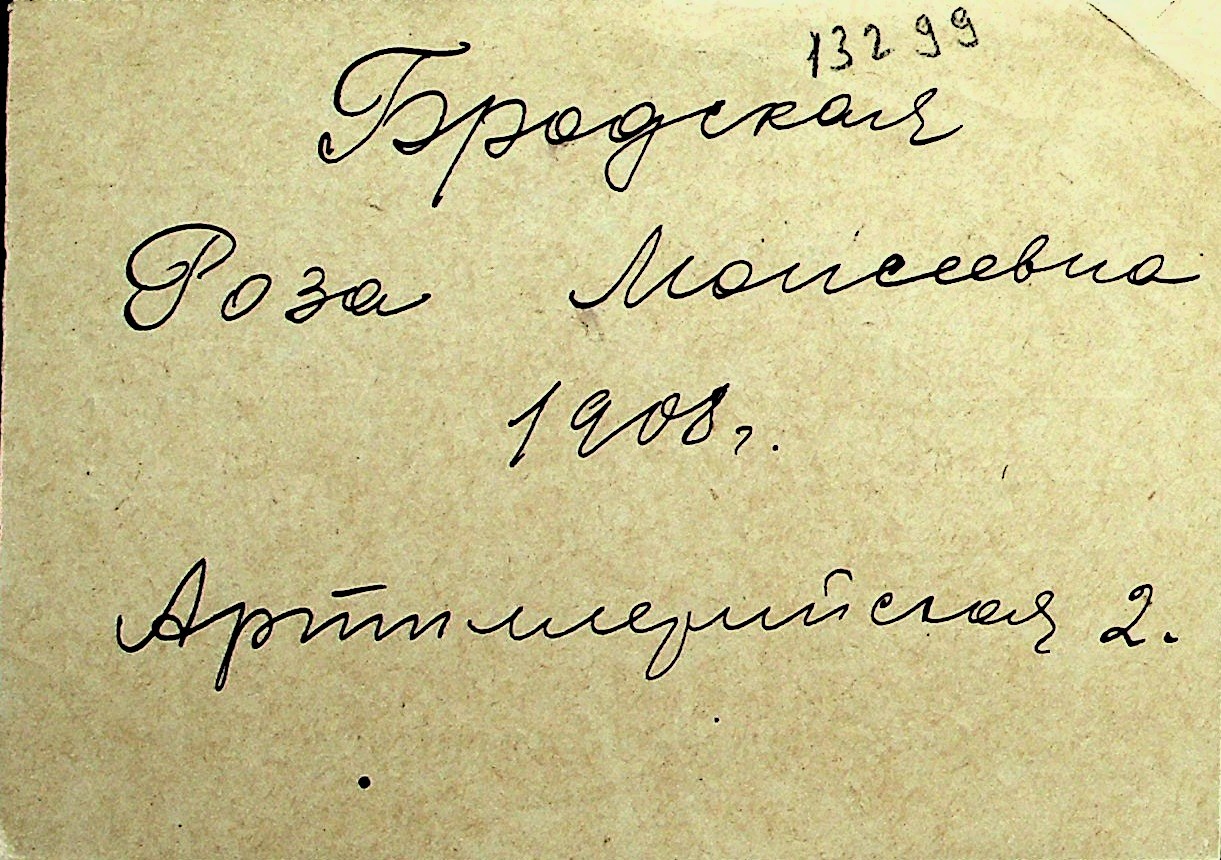 13299
Бродская
Роза Моисеевна
1908г.
Артиллерийская 2.